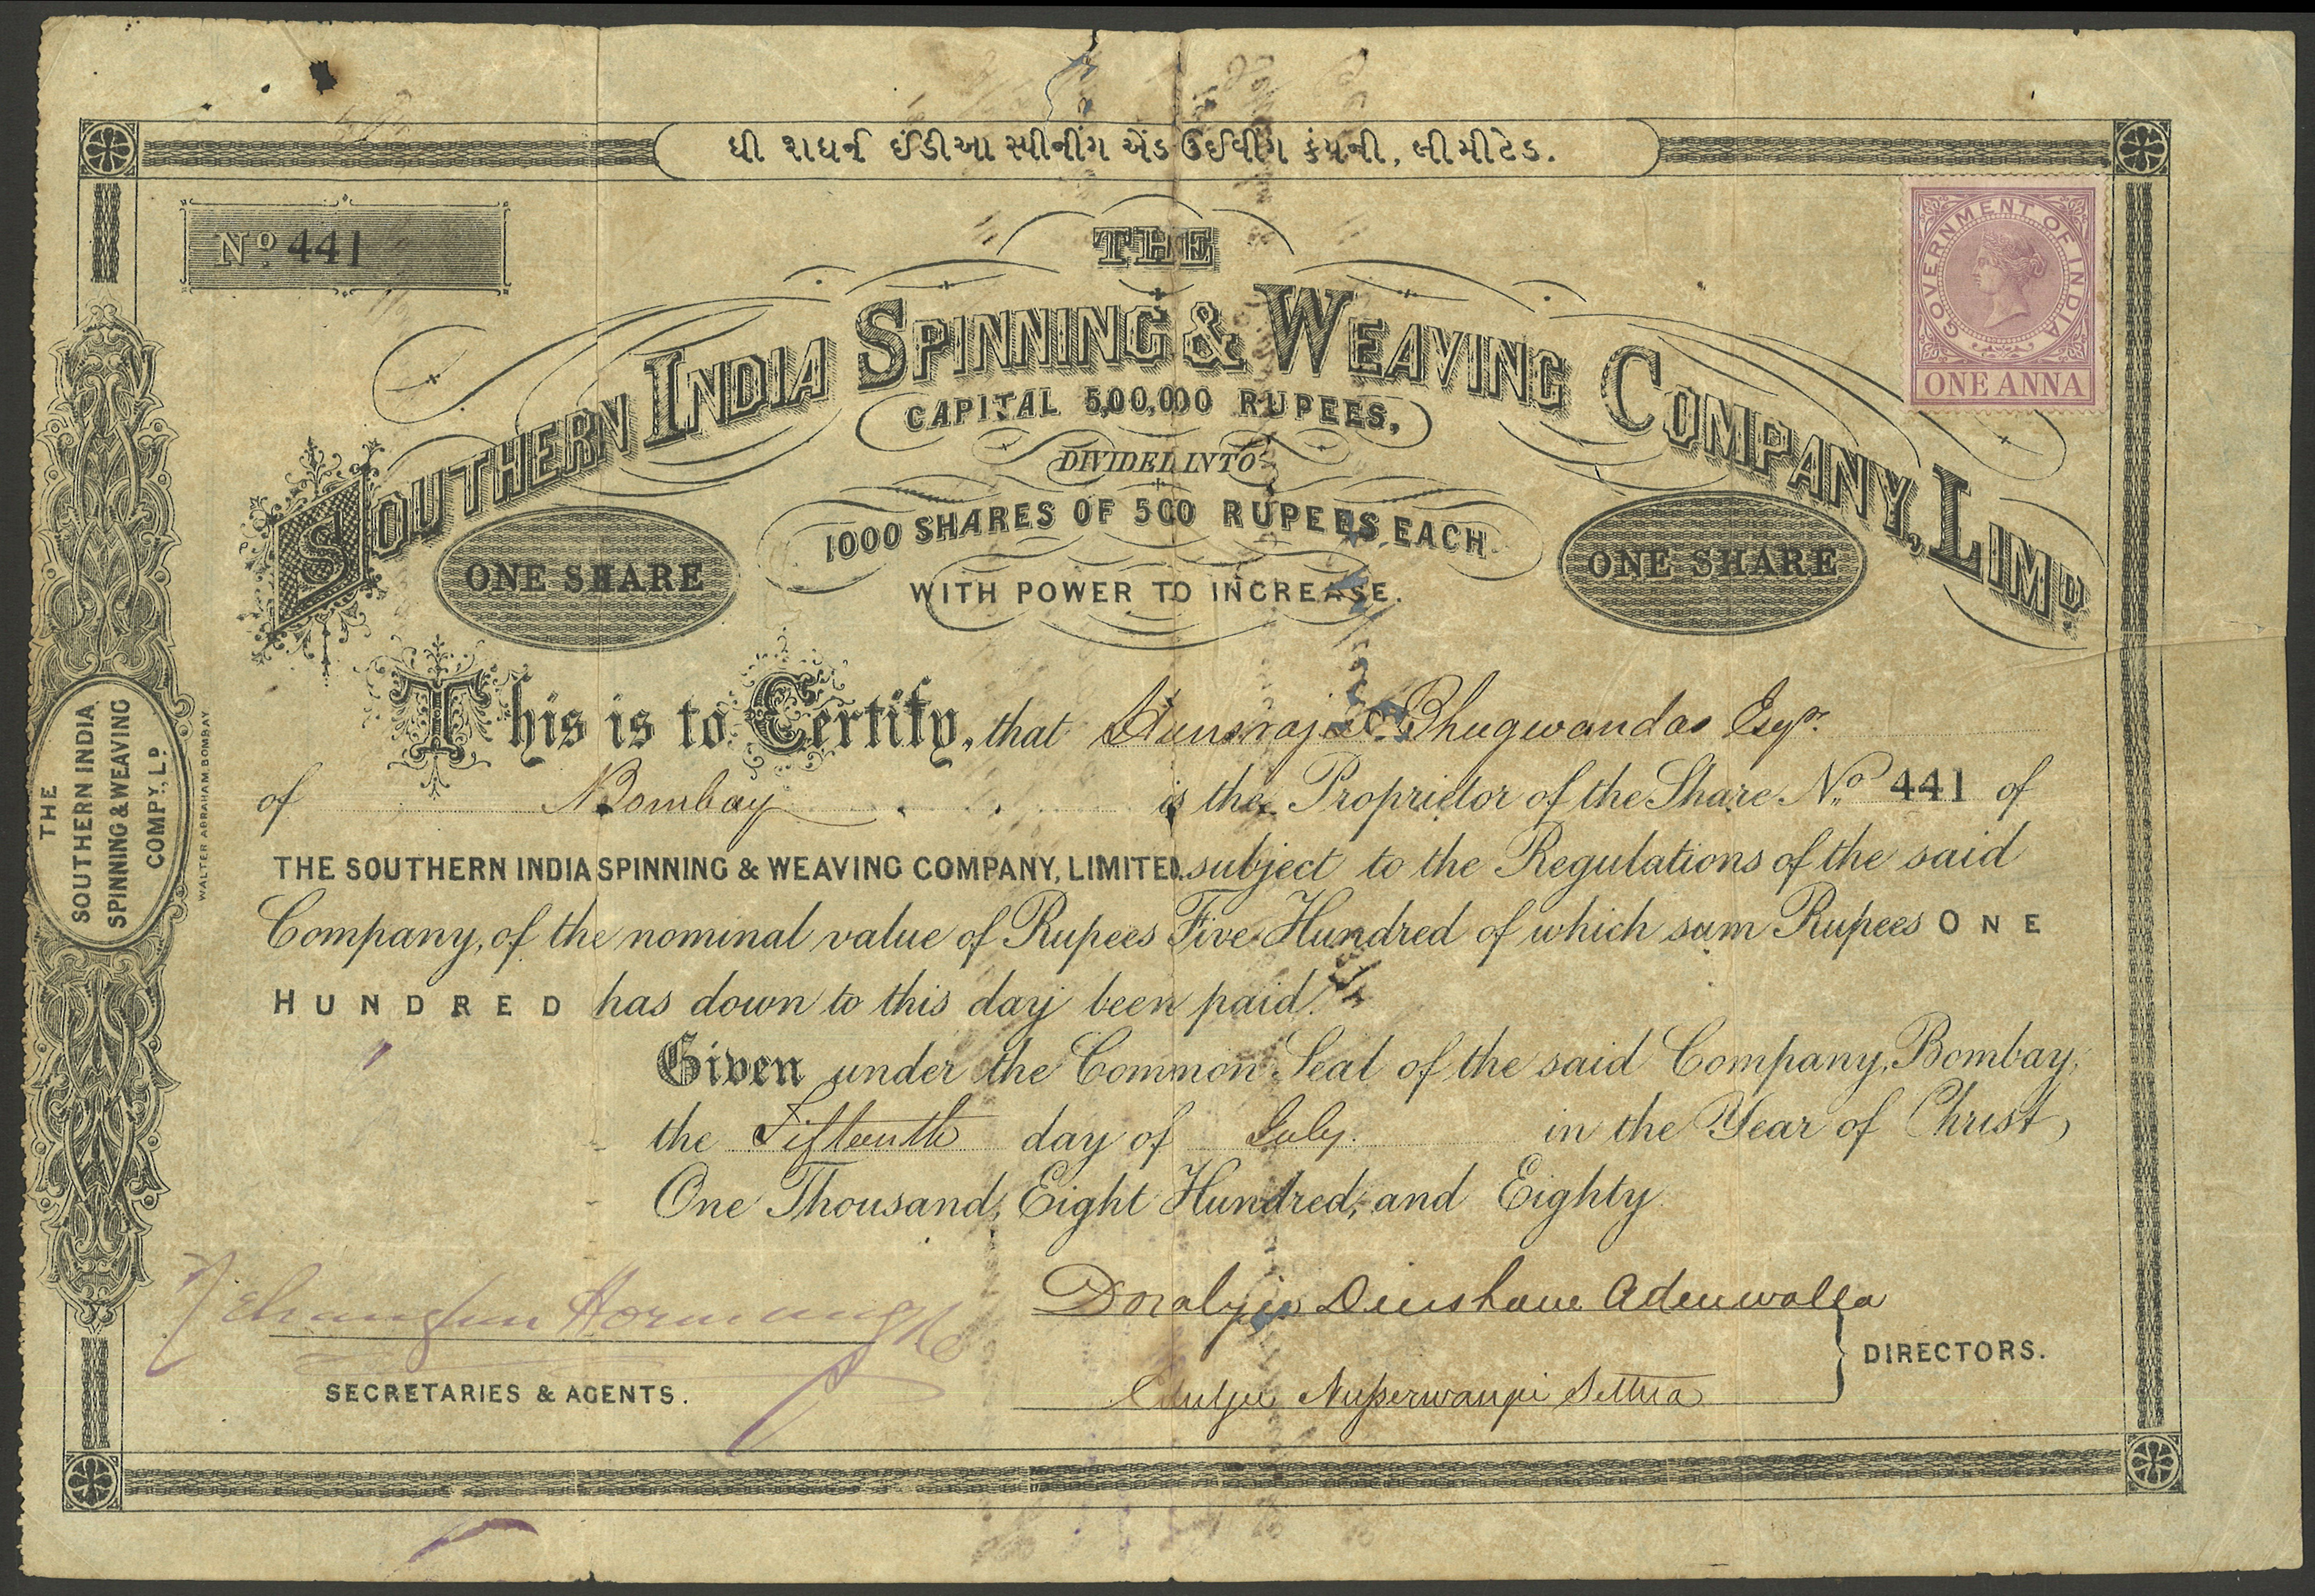 ધી શધર્ન ઈંડીઆ સ્પીનીંગ એંડ ઉઈવીંગ કંપની, લીમીટેડ.
No. 441
GOVERNMENT OF INDIA
ONE ANNA
THE
SOUTHERN INDIA SPINNING & WEAVING COMPANY, LIMD.
CAPITAL 5,00,000 RUPEES,
DIVIDED INTO
1000 SHARES OF 500 RUPEES EACH
WITH POWER TO INCREASE.
ONE SHARE
ONE SHARE
This is to Certify, that Hunsraj Bhugwandas Esqr.
of Bombay is the Proprietor of the Share No. 441 of
THE SOUTHERN INDIA SPINNING & WEAVING COMPANY, LIMITED. subject to the Regulations of the said
Company, of the nominal value of Rupees Five Hundred of which sum Rupees ONE
HUNDRED has down to this day been paid.
Given under the Common Seal of the said Company, Bombay,
the Fifteenth day of July. in the Year of Christ,
One Thousand, Eight Hundred, and Eighty
Dinshaw Adenwalla
Nusserwanji Settna
DIRECTORS.
SECRETARIES & AGENTS.
THE
SOUTHERN INDIA
SPINNING & WEAVING
COMPY., LD.
WALTER ABRAHAM. BOMBAY